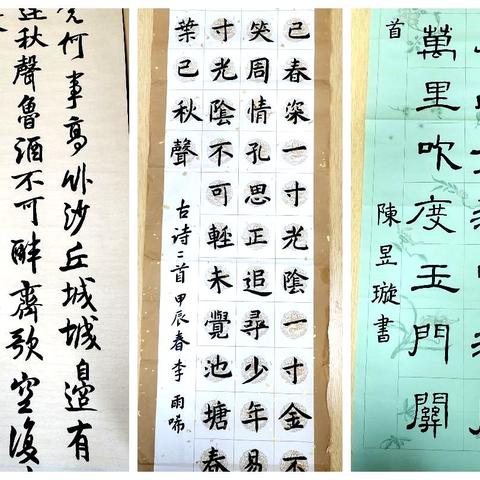 何事高卧沙丘城城邊有
連秋聲魯酒不可醉齊歌空復
已春深一寸光陰一寸金不
笑周情孔思正追尋少年易
寸光陰不可輕未覺池塘春
葉已秋聲
古诗二首甲辰春李雨唏
萬里吹度玉門關
首
陳昱璇書